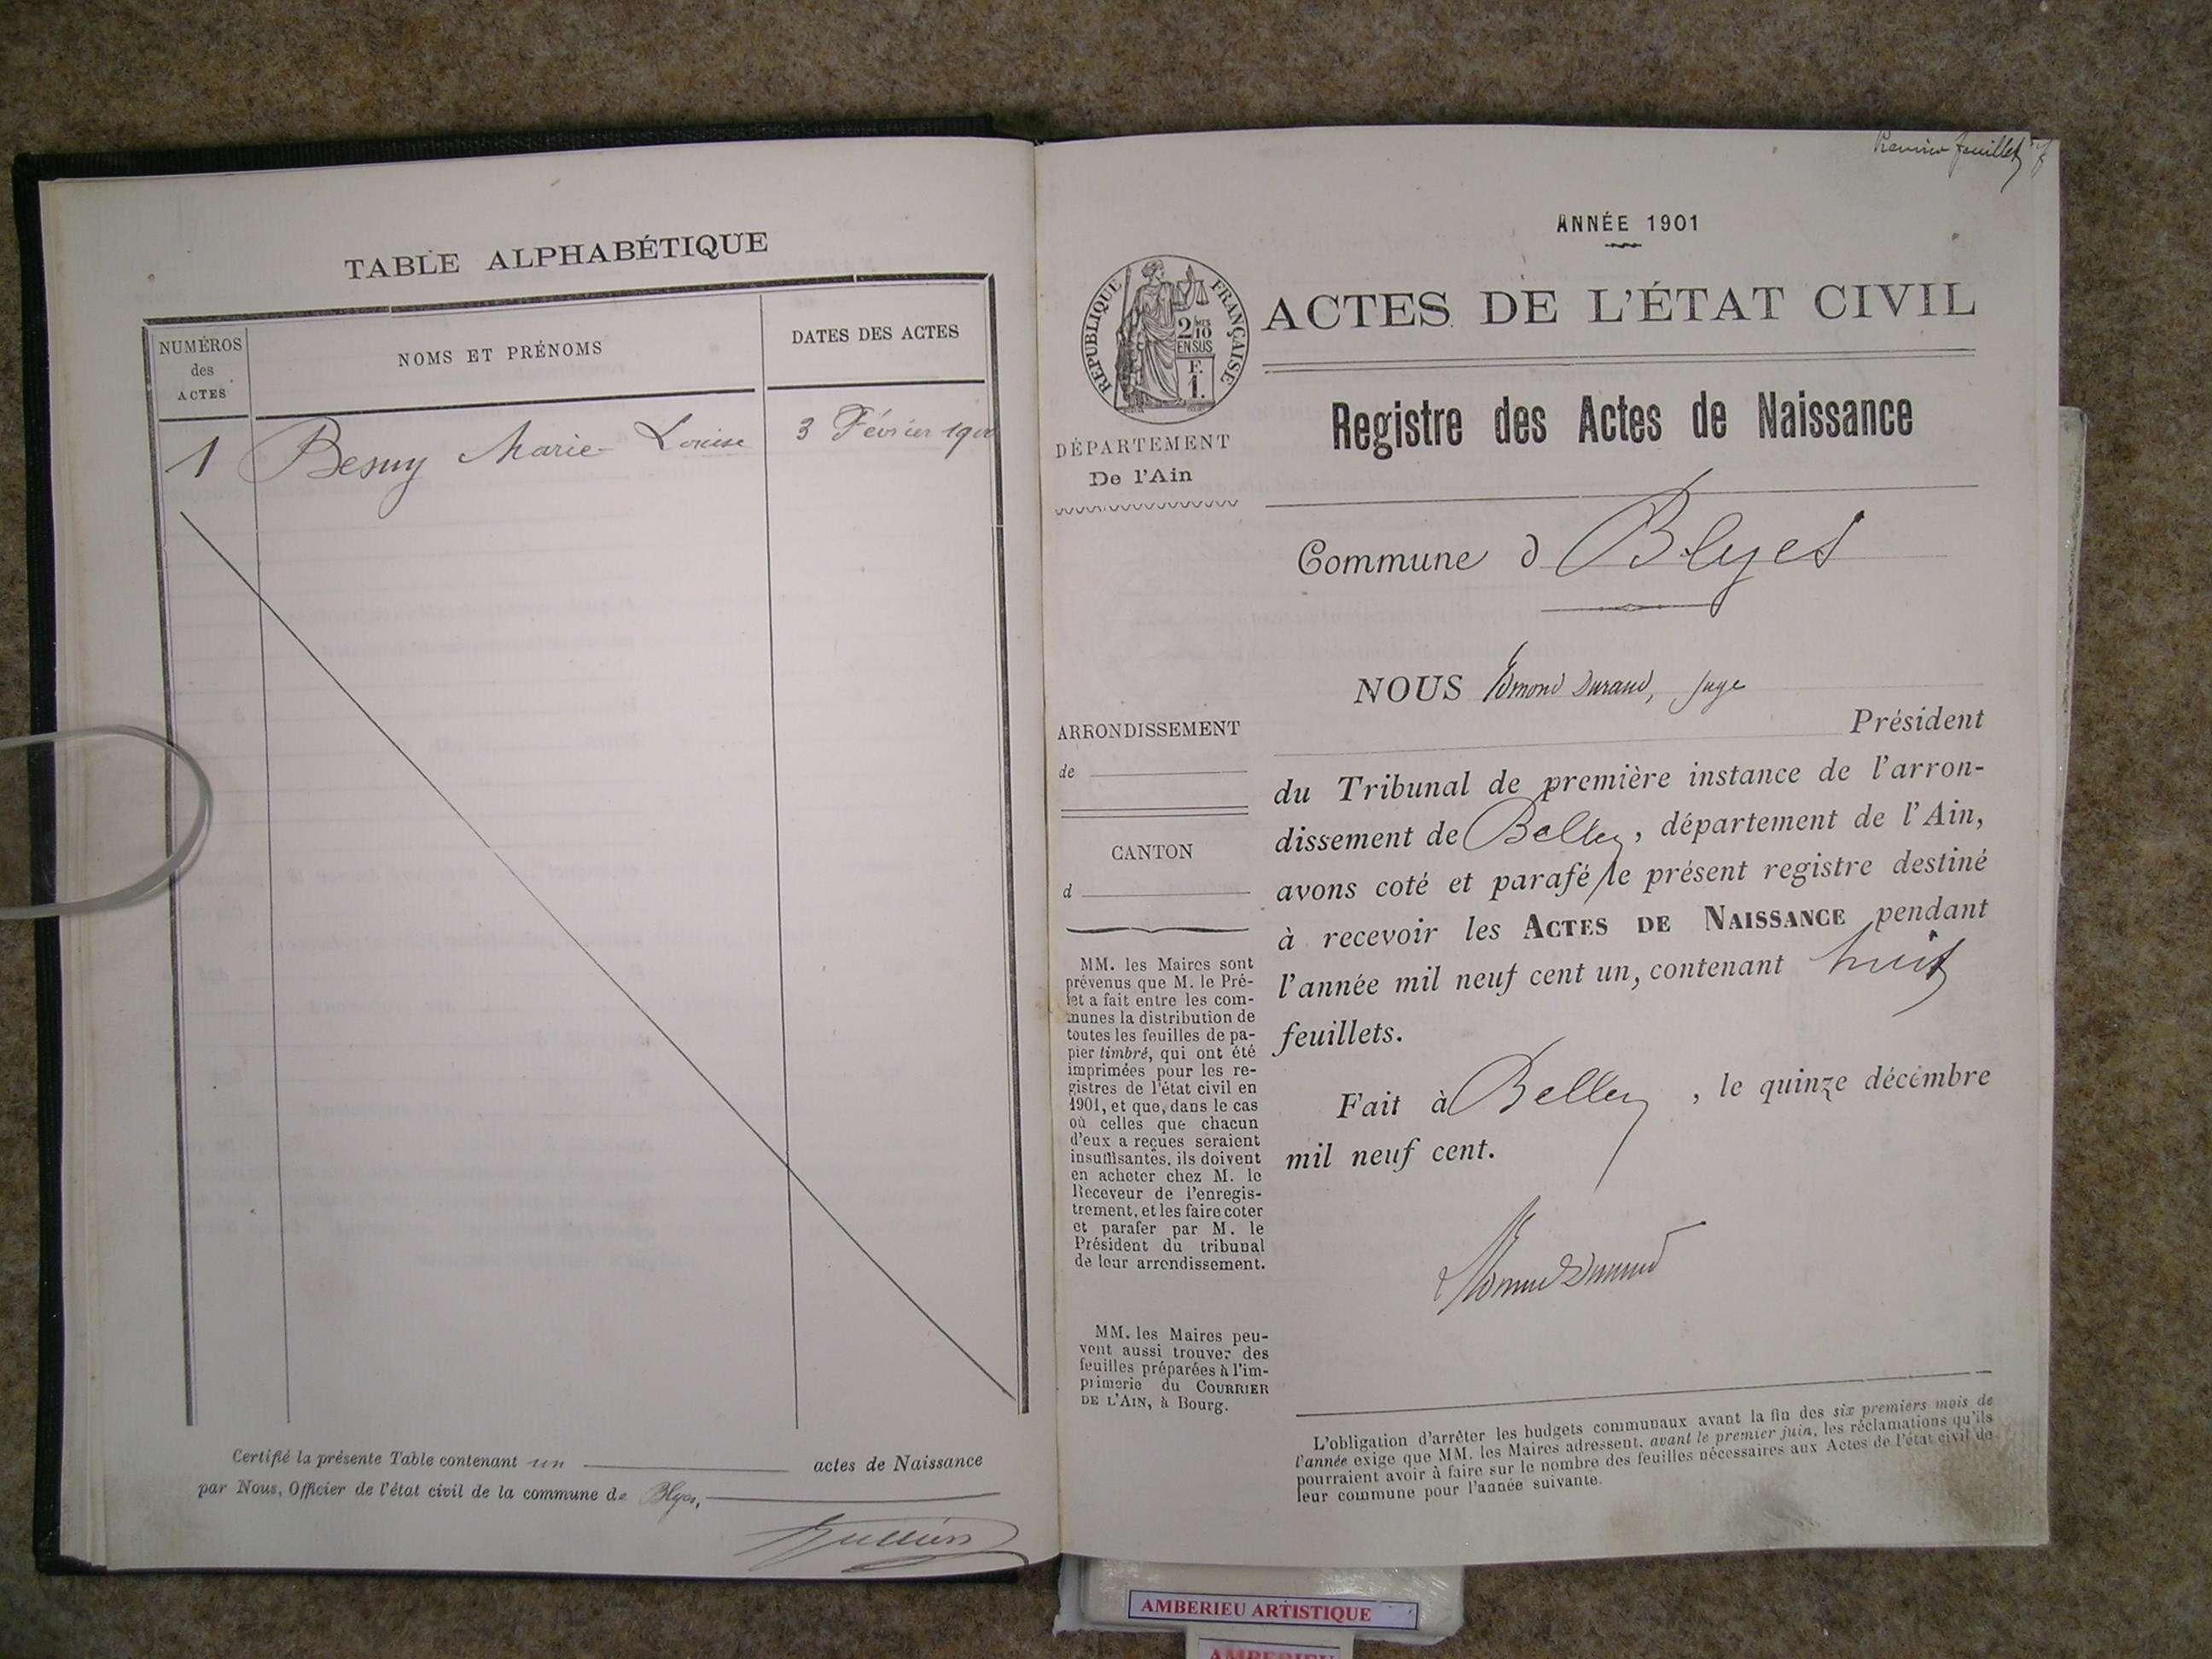 TABLE ALPHABÉTIQUE
NUMÉROS
des
ACTES
NOMS ET PRÉNOMS
DATES DES ACTES
1 Marie-Louise 3 Février 1900
Certifié la présente Table contenant un actes de Naissance
par Nous, Officier de l'état civil de la commune de Blyes,
Premier feuillet
ANNÉE 1901
RÉPUBLIQUE FRANÇAISE
2/10
EN SUS
F.
1.
ACTES DE L'ÉTAT CIVIL
Registre des Actes de Naissance
DÉPARTEMENT
De l'Ain
Commune d Blyes
NOUS Edmond Durand, Juge
Président
du Tribunal de première instance de l'arron-
dissement de Belley, département de l'Ain,
avons coté et parafé le présent registre destiné
à recevoir les ACTES DE NAISSANCE pendant
l'année mil neuf cent un, contenant huit
feuillets.
Fait à Belley, le quinze décembre
mil neuf cent.
Edmond Durand
ARRONDISSEMENT
de
CANTON
d
MM. les Maires sont
prévenus que M. le Pré-
fet a fait entre les com-
munes la distribution de
toutes les feuilles de pa-
pier timbré, qui ont été
imprimées pour les re-
gistres de l'état civil en
1901, et que, dans le cas
où celles que chacun
d'eux a reçues seraient
insuffisantes, ils doivent
en acheter chez M. le
Receveur de l'enregis-
trement, et les faire coter
et parafer par M. le
Président du tribunal
de leur arrondissement.
MM. les Maires peu-
vent aussi trouver des
feuilles préparées à l'im-
primerie du COURRIER
DE L'AIN, à Bourg.
L'obligation d'arrêter les budgets communaux avant la fin des six premiers mois de
l'année exige que MM. les Maires adressent, avant le premier juin, les réclamations qu'ils
pourraient avoir à faire sur le nombre des feuilles nécessaires aux Actes de l'état civil de
leur commune pour l'année suivante.
AMBERIEU ARTISTIQUE
AMBERIEU